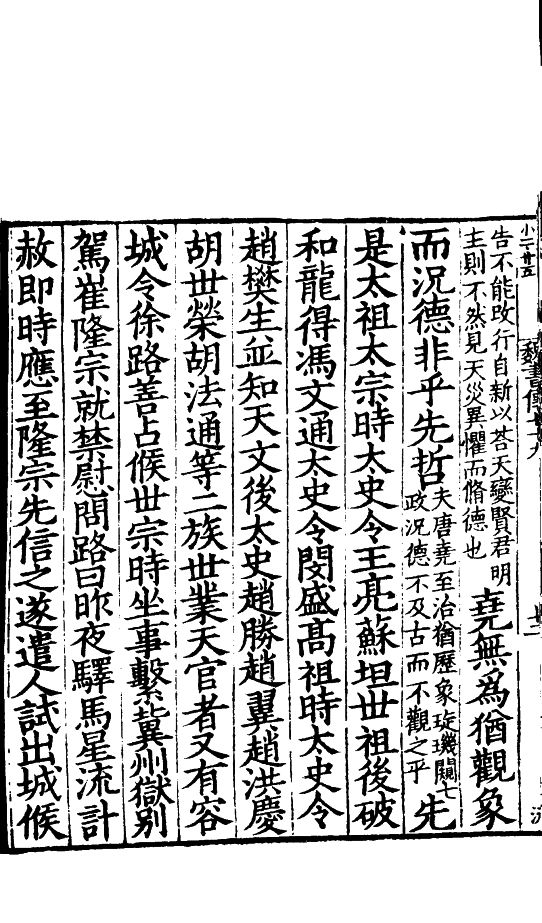 小二廿五
魏書傳七十九
告不能改行自新以荅天變賢君明
主則不然見天災異懼而脩德也
堯無爲猶觀象
而況德非乎先哲
夫唐堯至治猶歷象璇璣闚七
政況德不及古而不觀之乎
先
是太祖太宗時太史令王亮蘇坦世祖後破
和龍得馮文通太史令閔盛高祖時太史令
趙樊生並知天文後太史趙勝趙翼趙洪慶
胡世榮胡法通等二族世業天官者又有容
城令徐路善占候世宗時坐事繫冀州獄别
駕崔隆宗就禁慰問路曰昨夜驛馬星流計
赦即時應至隆宗先信之遂遣人試出城候